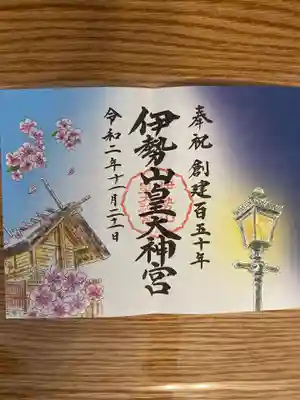 奉祝 創建百五十年
伊勢山皇大神宮
令和二年十一月二三日